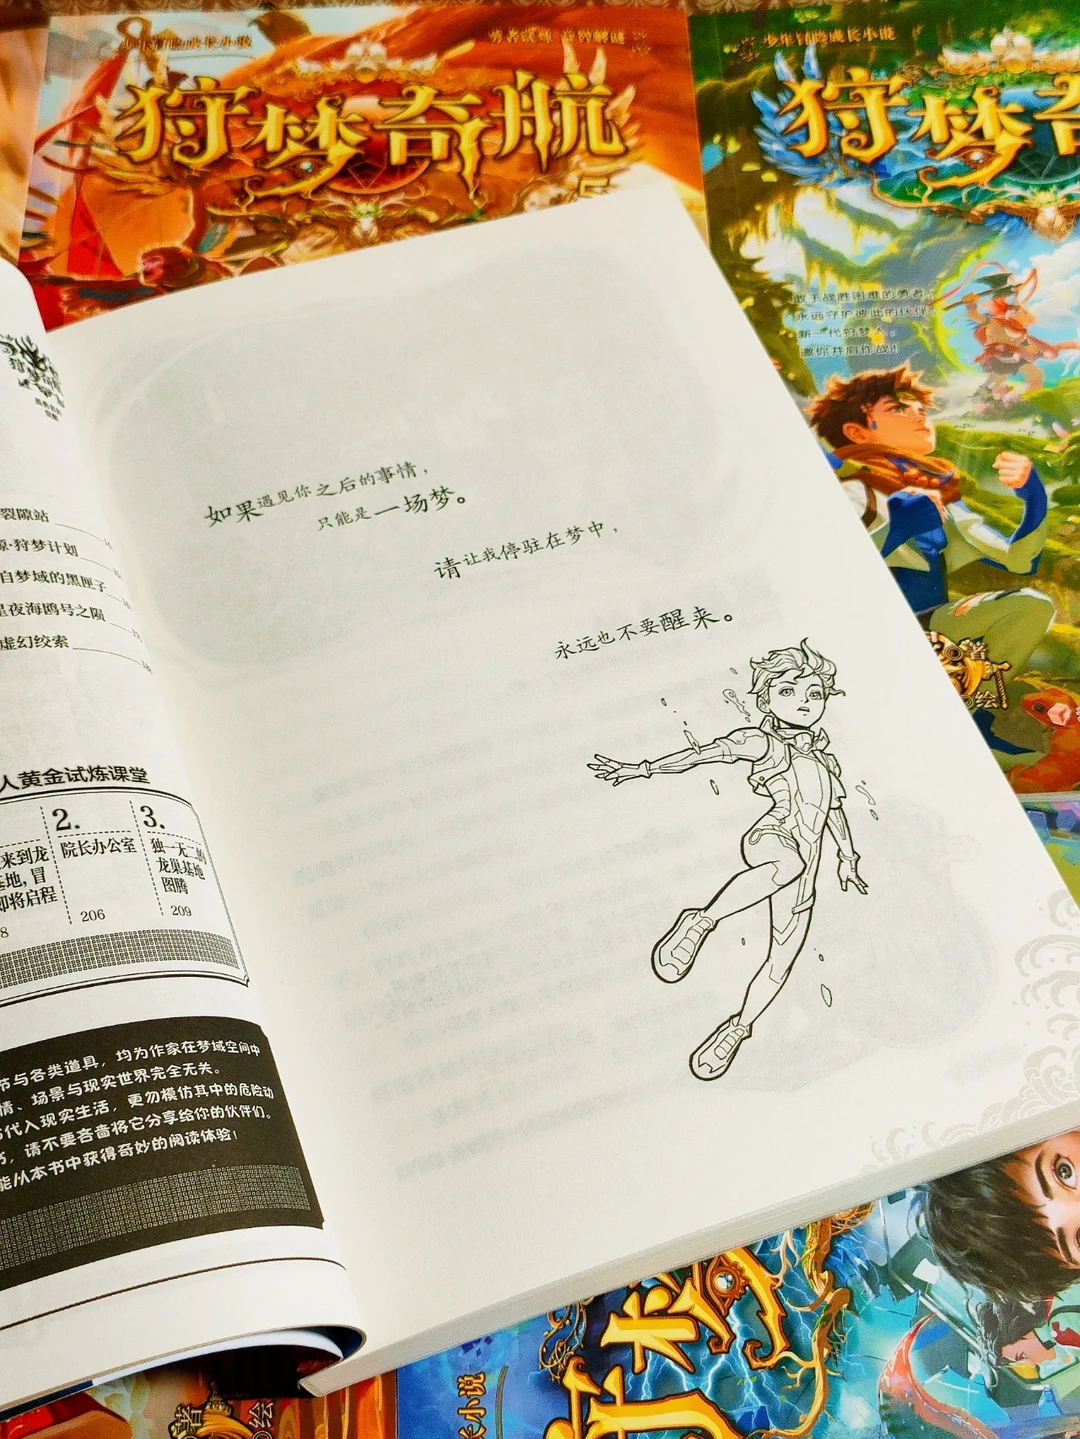 少年冒险成长小说
勇者试炼 奇智解谜
狩梦奇航
5
少年冒险成长小说
狩梦奇
敢于战胜困难的勇者，
永远守护彼此的伙伴，
新一代狩梦人，
邀你并肩作战！
著
绘
裂隙站
·狩梦计划
自梦域的黑匣子
星夜海鸥号之陨
虚幻绞索
人黄金试炼课堂
来到龙
基地，冒
即将启程
8
2.
院长办公室
206
3.
独一无二的
龙巢基地
图腾
209
节与各类道具，均为作家在梦域空间中
情、场景与现实世界完全无关。
代入现实生活，更勿模仿其中的危险动
，请不要吝啬将它分享给你的伙伴们。
能从本书中获得奇妙的阅读体验！
如果遇见你之后的事情，
只能是一场梦。
请让我停驻在梦中，
永远也不要醒来。
著
绘
长小说
狩梦